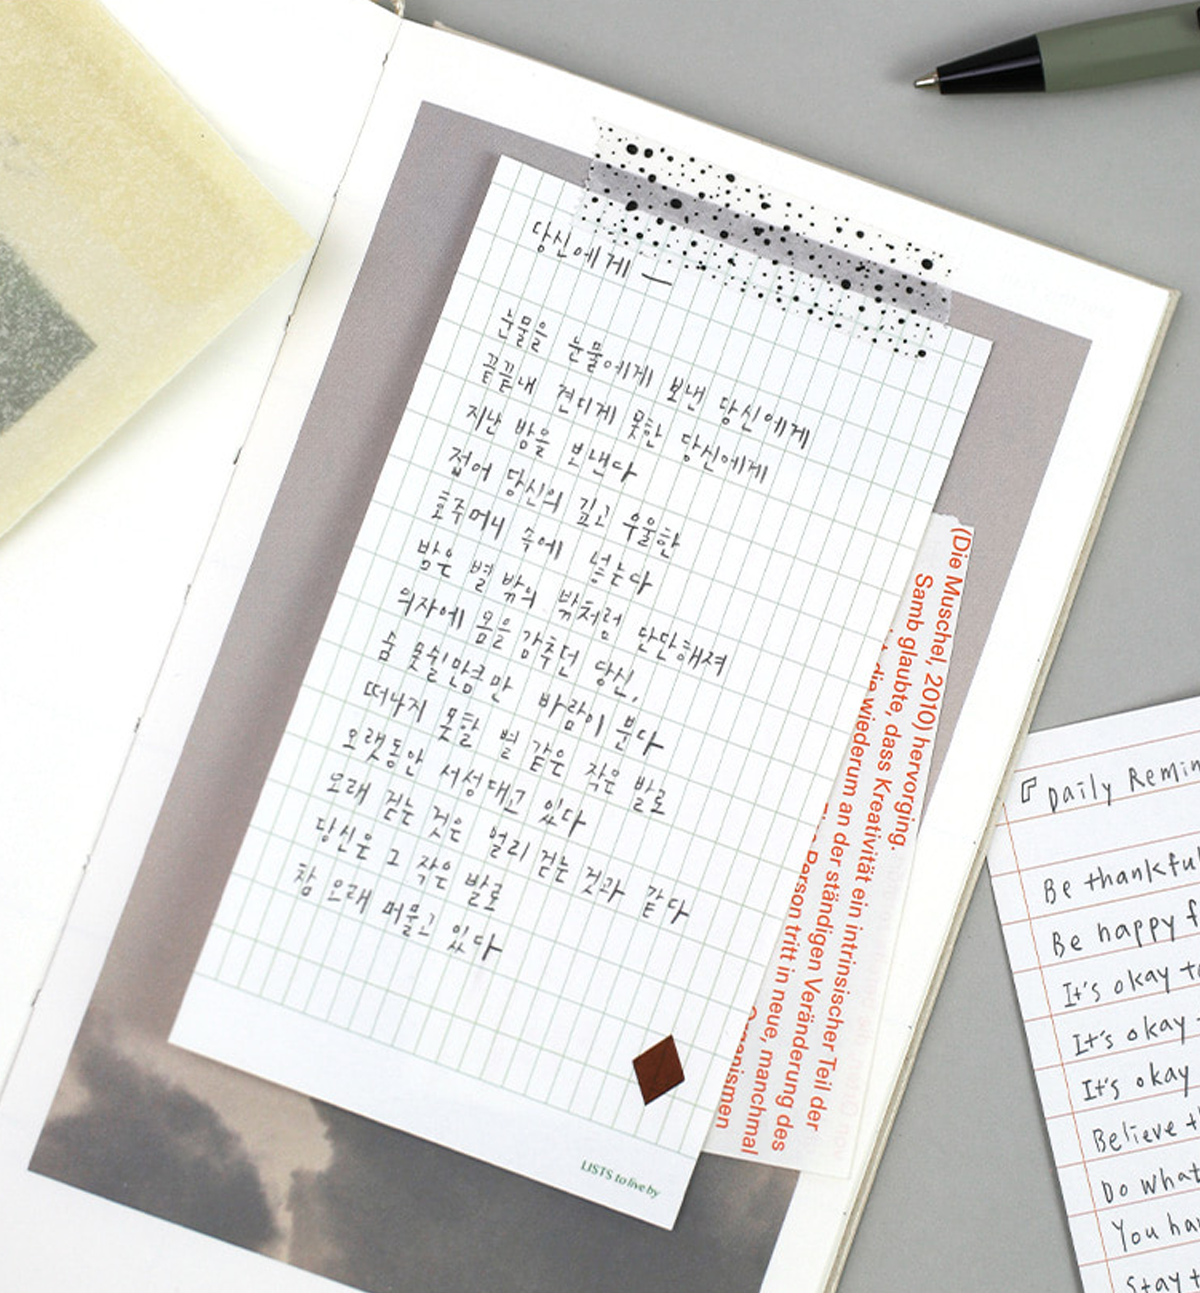 당신에게 —
눈물을 눈물에게 보낸 당신에게
끝끝내 견디게 못한 당신에게
지난 밤을 보낸다
접어 당신의 깊고 우울한
호주머니 속에 넣는다
밤은 별 밖의 밖처럼 단단해져
의자에 몸을 감추던 당신,
숨 못쉴만큼만 바람이 분다
떠나지 못할 별 같은 작은 발로
오랫동안 서성대고 있다
오래 걷는 것은 멀리 걷는 것과 같다
당신은 그 작은 발로
참 오래 머물고 있다
LISTS to live by
(Die Muschel, 2010) hervorging.
Samb glaubte, dass Kreativität ein intrinsischer Teil der
die wiederum an der ständigen Veränderung des
Person tritt in neue, manchmal
Daily
Be thankful
Be happy
It's okay to
It's okay
It's okay
Believe
Do what
You
Stay